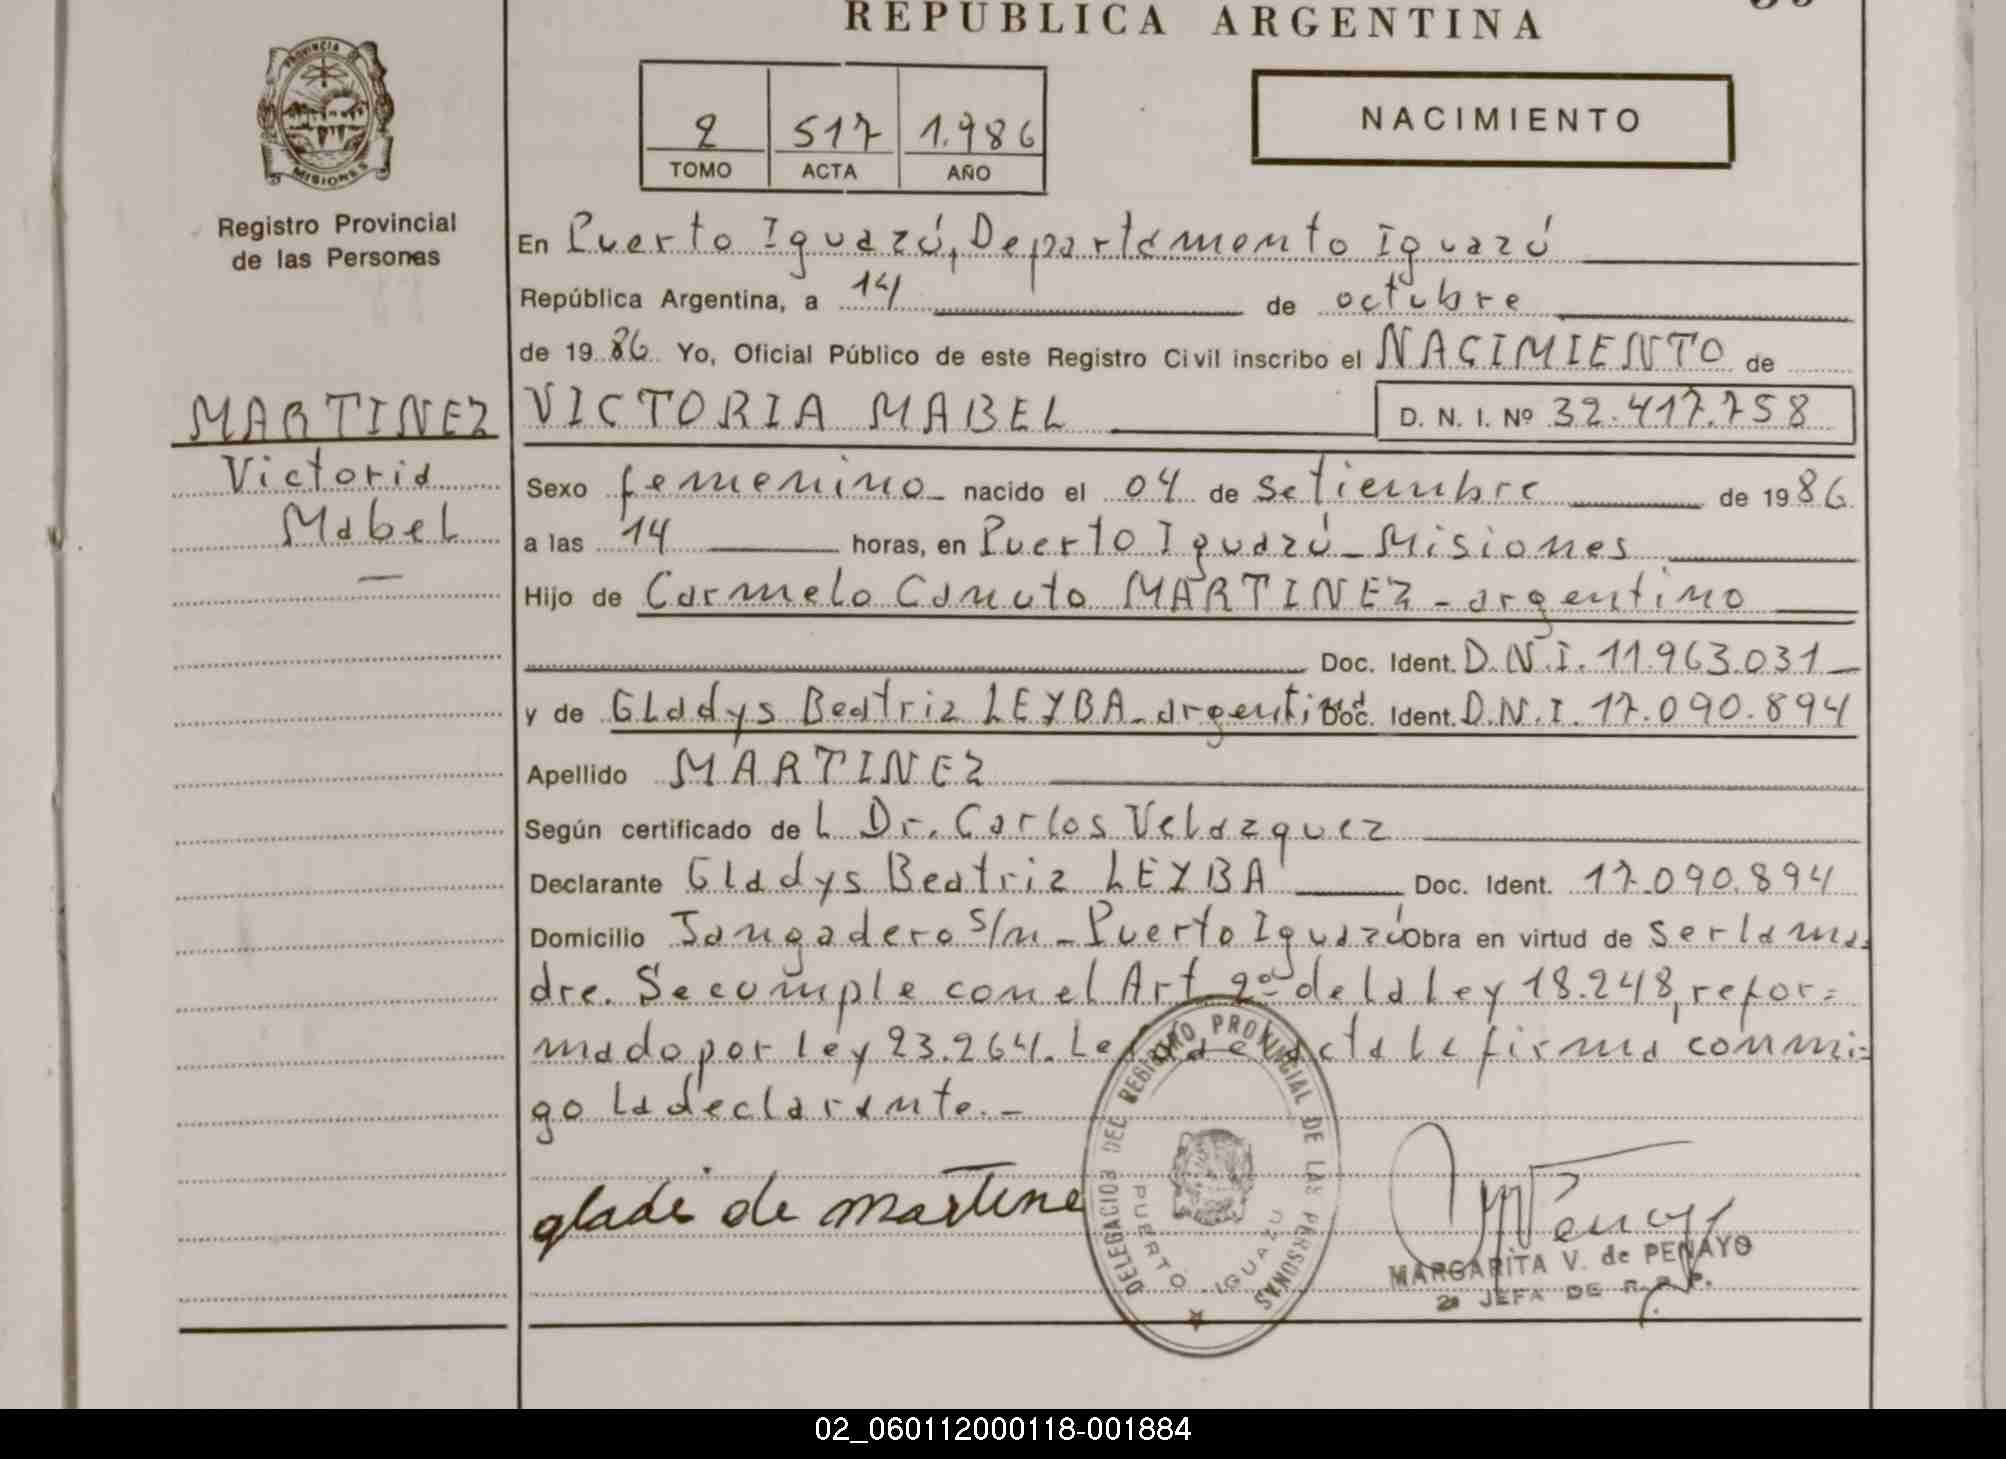 REPUBLICA ARGENTINA
PROVINCIA DE
MISIONES
Registro Provincial
de las Personas
2 517 1.986
TOMO ACTA AÑO
NACIMIENTO
En Puerto Iguazú, Departamento Iguazú
República Argentina, a 14 de octubre
de 19 86 Yo, Oficial Público de este Registro Civil inscribo el NACIMIENTO de
MARTINEZ
Victoria
Mabel
VICTORIA MABEL D. N. I. Nº 32.417.758
Sexo femenino nacido el 04 de setiembre de 19 86
a las 14 horas, en Puerto Iguazú - Misiones
Hijo de Carmelo Canuto MARTINEZ - argentino
Doc. Ident. D.N.I. 11.963.031 -
y de Gladys Beatriz LEYBA - argentina Doc. Ident. D.N.I. 17.090.894
Apellido MARTINEZ
Según certificado de L Dr. Carlos Velazquez
Declarante Gladys Beatriz LEYBA Doc. Ident. 17.090.894
Domicilio Jangadero s/n - Puerto Iguazú Obra en virtud de ser la ma-
dre. Se cumple con el Art. 2º de la Ley 18.248, refor=
mado por Ley 23.264. Leída el acta la firma conmi=
go la declarante. -
glade de martine
DELEGACION DEL REGISTRO PROVINCIAL DE LAS PERSONAS
PUERTO IGUAZU
MARGARITA V. de PENAYO
2a JEFA DE R. P. P.
02_060112000118-001884